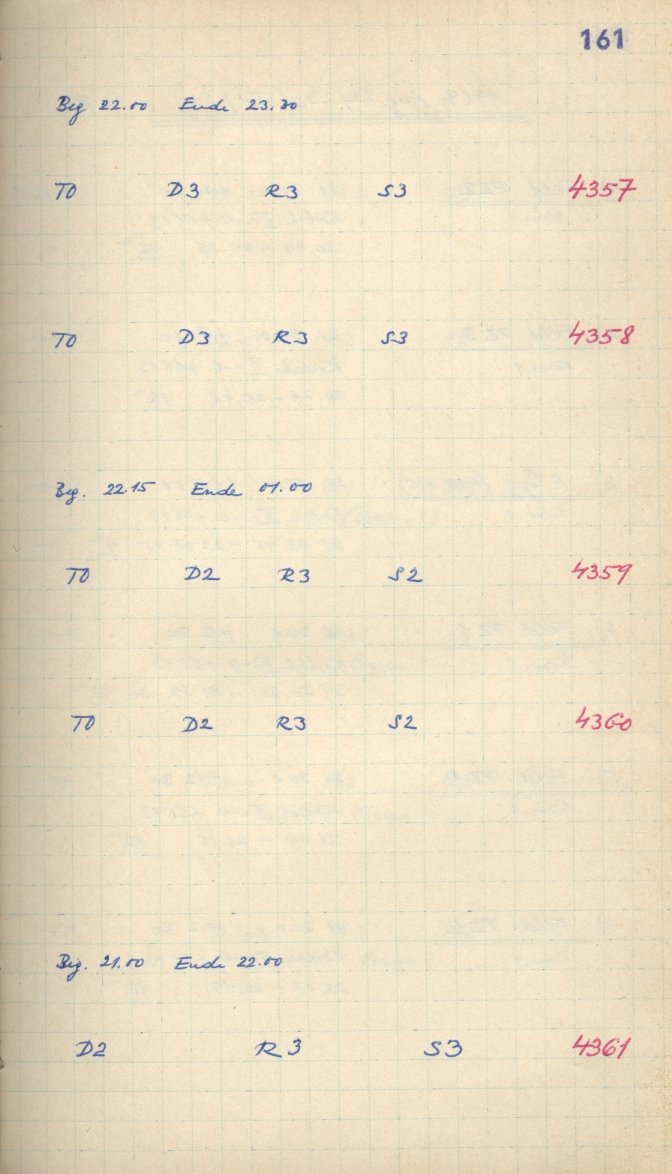 161
Beg 22.00 Ende 23.30
T0 D3 R3 S3 4357
T0 D3 R3 S3 4358
Beg. 22.15 Ende 01.00
T0 D2 R3 S2 4359
T0 D2 R3 S2 4360
Beg. 21.00 Ende 22.00
D2 R3 S3 4361